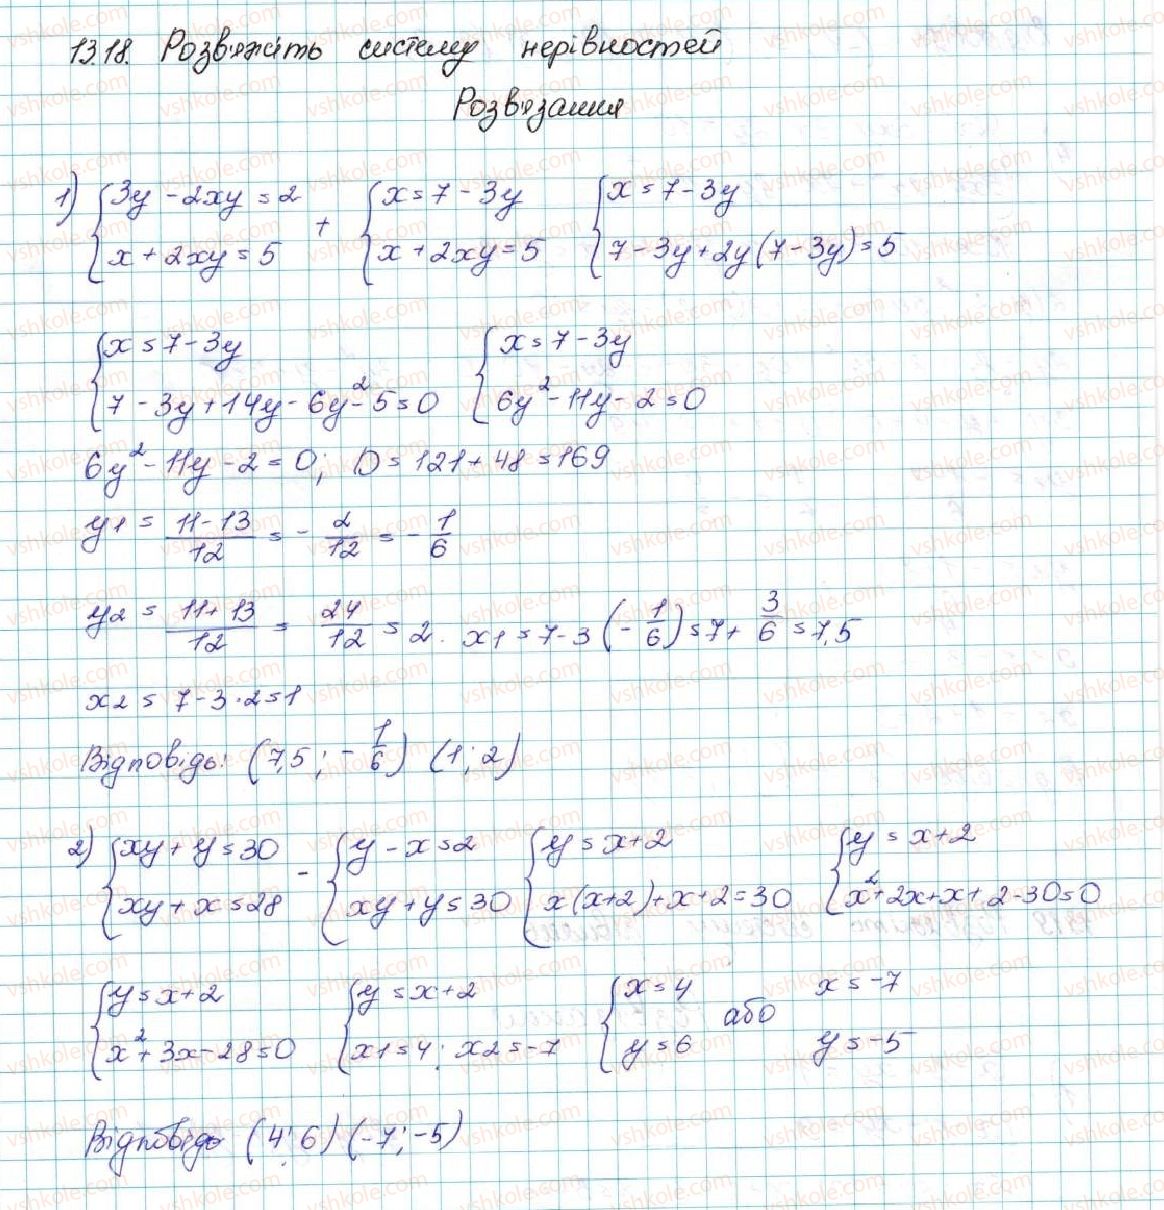 13.18. Розв'яжіть систему нерівностей
Розв'язання
1) { 3y - 2xy = 2 + { x = 7 - 3y { x = 7 - 3y
x + 2xy = 5 x + 2xy = 5 7 - 3y + 2y(7 - 3y) = 5
{ x = 7 - 3y { x = 7 - 3y
7 - 3y + 14y - 6y² - 5 = 0 6y² - 11y - 2 = 0
6y² - 11y - 2 = 0; D = 121 + 48 = 169
y1 = (11 - 13)/12 = - 2/12 = - 1/6
y2 = (11 + 13)/12 = 24/12 = 2. x1 = 7 - 3(- 1/6) = 7 + 3/6 = 7,5
x2 = 7 - 3·2 = 1
Відповідь: (7,5; - 1/6) (1; 2)
2) { xy + y = 30 - { y - x = 2 { y = x + 2 { y = x + 2
xy + x = 28 xy + y = 30 x(x + 2) + x + 2 = 30 x² + 2x + x + 2 - 30 = 0
{ y = x + 2 { y = x + 2 { x = 4 або x = -7
x² + 3x - 28 = 0 x1 = 4; x2 = -7 y = 6 y = -5
Відповідь (4; 6) (-7; -5)